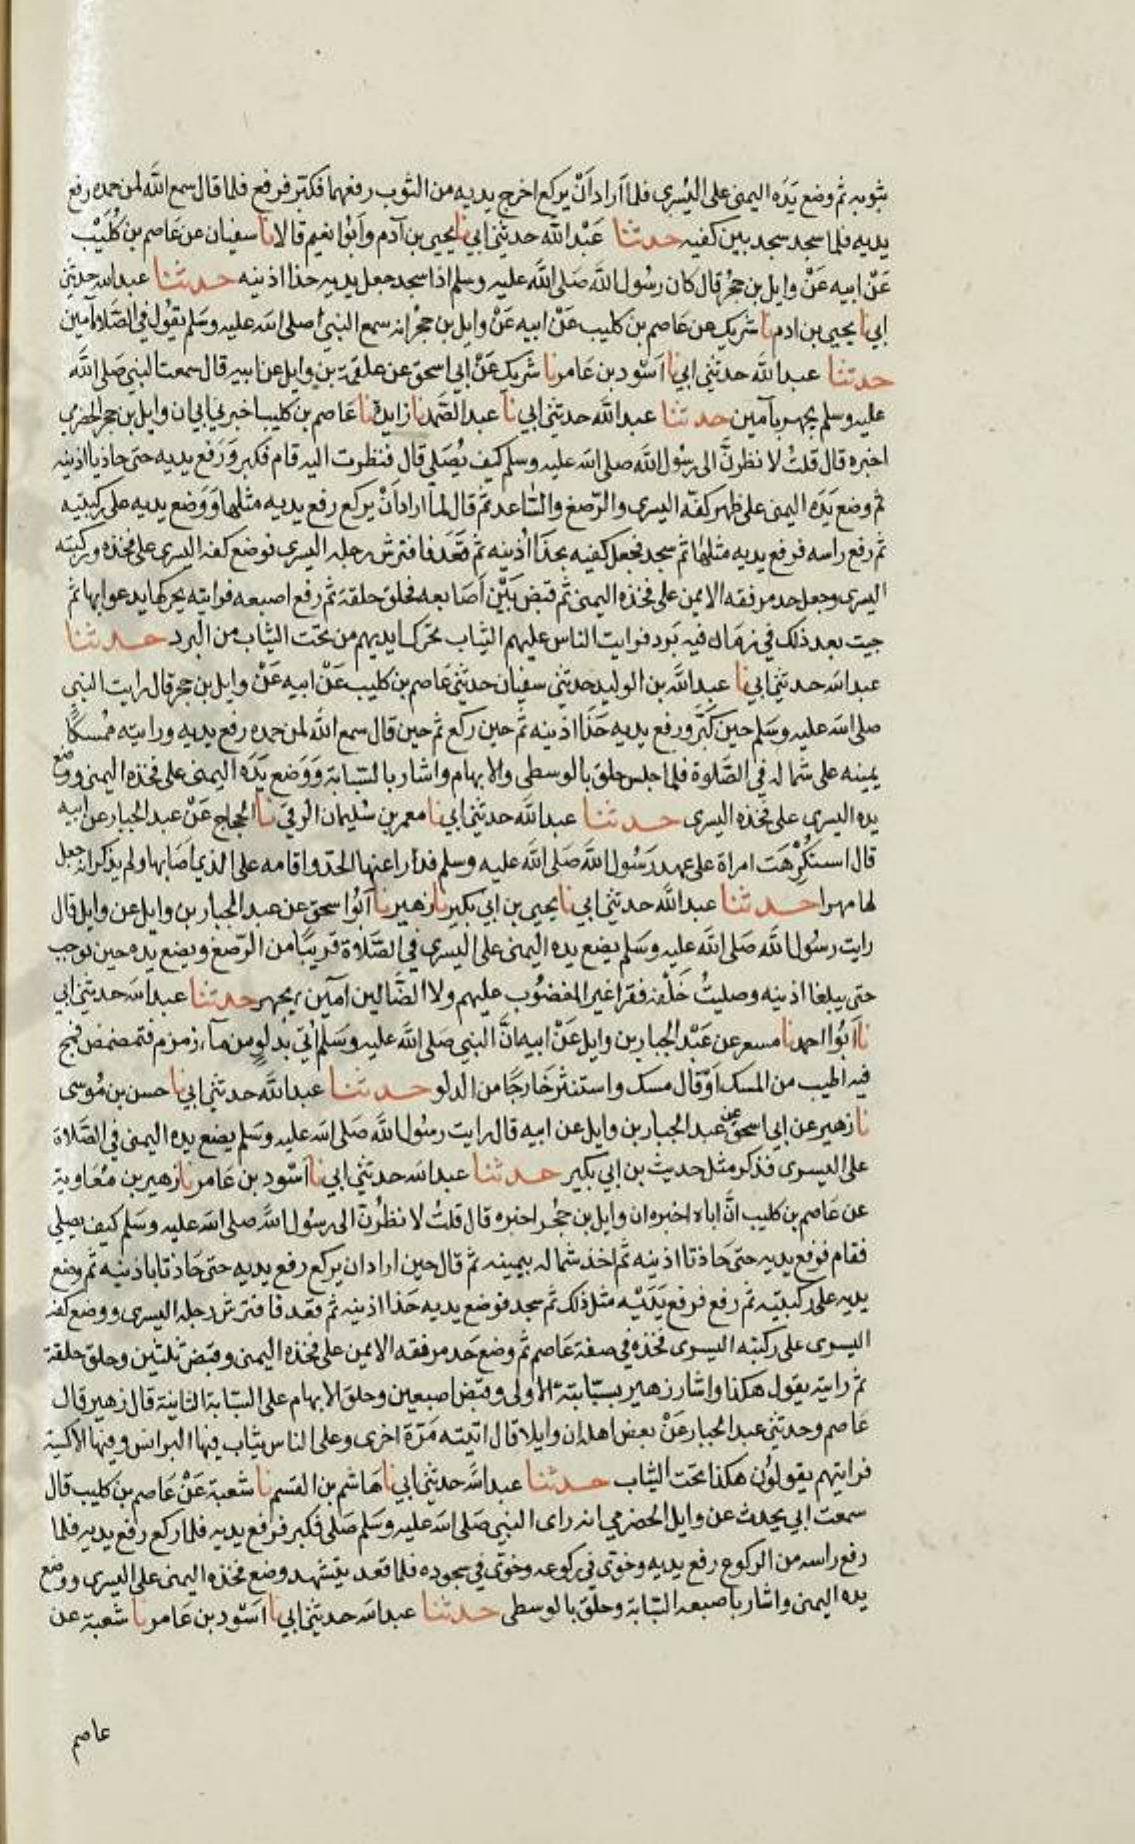 بثوبه ثم وضع يَدَه اليمنى على اليُسرى فلما اَرادَ اَنْ يركع اخرج يديه من الثوب رفعهما فكبّر فرفع فلما قال سمع اللّٰه لمن حمده رفع
يديه فلما سجد سجد بين كفيه حدثنا عَبْد اللّٰه حدثنى ابي نا يحيى بن آدم وابُوا نعيم قالا نا سفيان عن عاصم بن كُلَيْب
عَنْ ابيه عَنْ وايل بن حجر قال كان رسُول اللّٰه صَلى اللّٰه عليه وسلم اذا سجد جعل يديه حذا اذنيه حدثنا عبد اللّٰه حدثنى
ابي نا يحيى بن ادم نا شريك عن عَاصم بن كليب عَنْ ابيه عَنْ وايل بن حجْر انه سمع النبيّ صلى اللّٰه عليه وسَلم يقول في الصّلاة آمين
حدثنا عبد اللّٰه حدثنى ابي نا اَسْود بن عَامر نا شريك عَنْ ابي اسحق عن علقمة بن وايل عن ابيه قال سمعت النبي صَلى اللّٰه
عليه وسلم يجهر بآمين حدثنا عبد اللّٰه حدثنى ابي نا عبد الصَّمد نا زايدة نا عَاصم بن كليب اخبرني ابي ان وايل بن حجر الحضرمي
اخبره قال قلتُ لانظرنَّ الى رسُول اللّٰه صلى اللّٰه عليه وسلم كيف يُصَلي قال فنظرت اليه قام فكبر وَرَفع يديه حتى حاذيا اذنيه
ثم وضع يَدَه اليمنى على ظهر كفّه اليسرى والرّصغ والسَّاعد ثمّ قال لمّا اراد اَنْ يركع رفع يديه مثلها وَوَضع يديه على ركبتيه
ثم رفع راسه فرفع يديه مثلها ثم سجد فجعل كفيه بحذا اُذنيه ثم قعَدَ فافترش رجله اليسرى فوضع كفه اليسرى على فخذه وركبته
اليسرى وجعل حد مرفقه الايمن على فخذه اليمنى ثم قبض بَيْن اَصَابعه فحلق حلقة ثم رفع اصبعه فرايته يحركها يدعو ابها ثم
جيت بعد ذلك في زمَان فيه بَرد فرايت الناس عليهم الثياب تحرّك ايديهم من تحت الثياب من البرد حدثنا
عبد اللّٰه حدثنى ابي نا عبد اللّٰه بن الوليد حدثني سفيان حدثني عاصم بن كليب عَنْ ابيه عَنْ وايل بن حجر قال رايت النبي
صلى اللّٰه عليه وسَلم حين كبَّر ورفع يديه حَذَا اذنيه ثم حين ركع ثم حين قال سمع اللّٰه لمن حمده رفع يديه ورايته مُمسكًا
يمينه على شماله في الصَّلوة فلما جلس حلق بالوسطى والابهام واشار بالسَّبابة وَوَضع يَدَه اليمنى على فخذه اليمنى ووضع
يده اليسرى على فخذه اليسرى حدثنا عبد اللّٰه حدثنى ابي نا معمر بن سُليمان الرقي نا الحجاج عَنْ عبد الجبار عن ابيه
قال استكرْهَت امراة على عهد رَسُول اللّٰه صَلى اللّٰه عليه وسلم فدرأ عنها الحدّ واقامه على الذي اصَابها ولم يذكر انه جعل
لها مهرا حدثنا عبد اللّٰه حدثنى ابي نا يحيى بن ابي بكير نا زهير نا اَبُوا سحق عن عبد الجبار بن وايل عن وايل قال
رايت رسُول اللّٰه صَلى اللّٰه عليه وسَلم يضع يده اليمنى على اليسرى في الصَّلاة قريبًا من الرّصغ ويضع يده حين يوجب
حتى يبلغا اذنيه وصليتُ خَلْفه فقرا غير المغضُوب عليهم ولا الضَّالين آمين يجهر حدثنا عبد اللّٰه حدثنى ابي
نا اَبُوا احمد نا مسعر عن عَبْد الجبار بن وايل عَنْ ابيه انَّ النبي صَلى اللّٰه عليه وسَلم اُتي بدلو من مآء زمزم فتمضمض فمج
فيه اطيب من المسك اَوْ قال مسك واستنثر خارجًا من الدلو حدثنا عبد اللّٰه حدثنى ابي نا حسن بن مُوسى
نا زهير عن ابي اسحق عن عبد الجبار بن وايل عن ابيه قال رايت رسُول اللّٰه صَلى اللّٰه عليه وسَلم يضع يده اليمنى في الصَّلاة
على اليسرى فذكر مثل حديث بن ابي بكير حدثنا عبد اللّٰه حدثنى ابي نا اَسْود بن عَامر نا زهير بن مُعَاوية
عن عَاصم بن كليب انَّ اباه اخبره ان وايل بن حجر اخبره قال قلتُ لانظرُنّ الى رسُول اللّٰه صلى اللّٰه عليه وسَلم كيف يصلي
فقام فرفع يديه حتى حَاذتا اذنيه ثم اخذ شماله بيمينه ثم قال حين اراد ان يركع رفع يديه حتى حَاذتا باذنيه ثم وضع
يديه على ركبتيه ثم رفع فرفع يَدَيْه مثل ذلك ثم سجد فوضع يديه حَذا اذنيه ثم قعد فافترش رجله اليسرى ووضع كفه
اليسرى على ركبته اليسرى فخذه في صفة عَاصم ثم وضع حَد مرفقه الايمن على فخذه اليمنى وقبض ثلثين وحلق حلقة
ثم رايته يقول هكذا واشار زهير بسبّابته الاولى وقبض اصبعين وحلق الابهام على السَّبابة الثانية قال زهير قال
عَاصم وحدثني عبد الجبار عَنْ بعض اهله ان وايلا قال اتيته مَرّة اخرى وعلى الناس ثياب فيها البرانس وفيها الاكسية
فرايتهم يقولوُن هكذا تحت الثياب حدثنا عبد اللّٰه حدثنى ابي نا هَاشم بن القسم نا شعبة عَنْ عَاصم بن كليب قال
سمعت ابي يحدث عن وايل الحضرمي انه راى النبي صَلى اللّٰه عليه وسَلم صَلى فكبر فرفع يديه فلما ركع رفع يديه فلما
رفع راسه من الركوع رفع يديه وخوّى في ركوعه وخوّى في سجوده فلما قعد يتشهد وضع فخذه اليمنى على اليسرى ووضع
يده اليمنى واشار باصبعه السَّبابة وحلق بالوسطى حدثنا عبد اللّٰه حدثنى ابي نا اسْود بن عَامر نا شعبة عن
عاصم